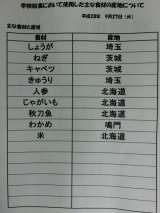 学校給食において使用した主な食材の産地について
平成28年 9月27日（火）
主な食材の産地
食材 産地
しょうが 埼玉
ねぎ 茨城
キャベツ 茨城
きゅうり 埼玉
人参 北海道
じゃがいも 北海道
秋刀魚 北海道
わかめ 鳴門
米 北海道